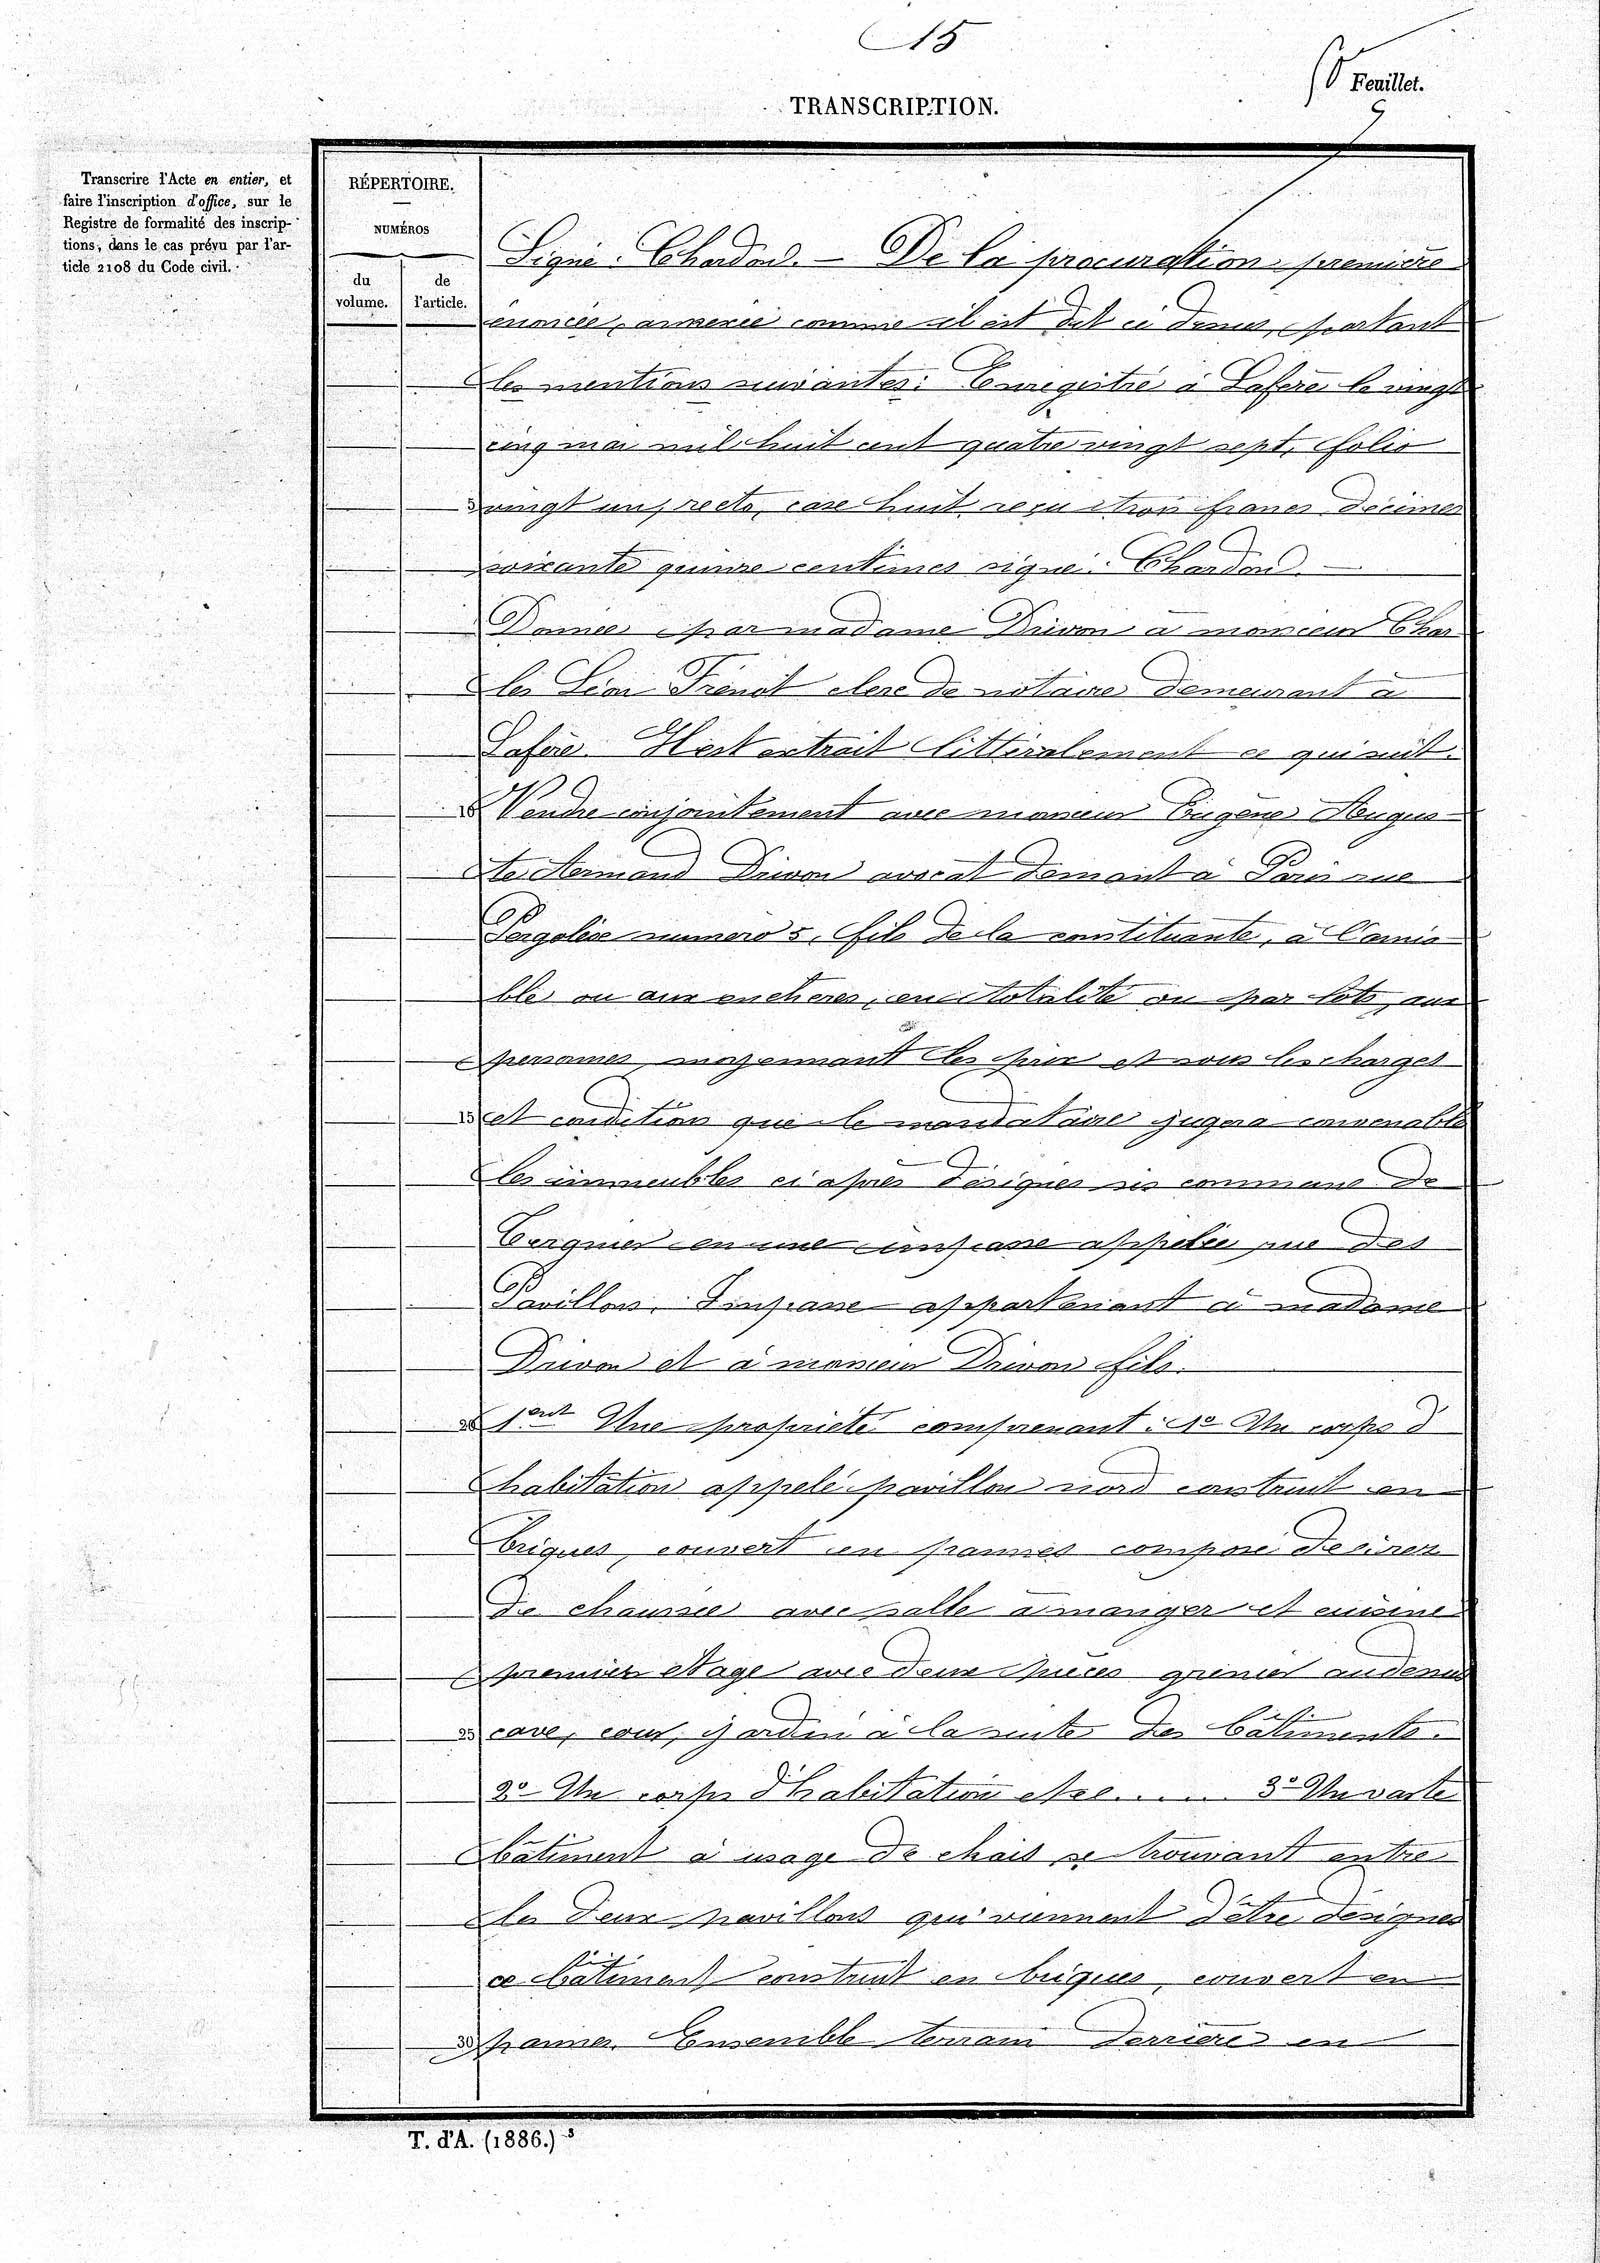 15
Feuillet.
TRANSCRIPTION.
Transcrire l'Acte en entier, et
faire l'inscription d'office, sur le
Registre de formalité des inscrip-
tions, dans le cas prévu par l'ar-
ticle 2108 du Code civil.
RÉPERTOIRE.
NUMÉROS
du
volume.
de
l'article.
Signé: Chardon. — De la procuration première
énoncée, annexée comme il est dit ci dessus, portant
les mentions suivantes: Enregistré à Lafère le vingt
cinq mai mil huit cent quatre vingt sept, folio
5 vingt un, recto, case huit reçu trois francs décimes
soixante quinze centimes signé: Chardon. —
Donnée par madame Drivon à monsieur Char
les Léon Frénot clerc de notaire demeurant à
Lafère. Il est extrait littéralement ce qui suit.
10 Vendre conjointement avec monsieur Eugène Augus-
te Armand Drivon avocat demeurant à Paris rue
Pergolèse numéro 5, fils de la constituante, à l'amia-
ble ou aux enchères, en totalité ou par lots, aux
personnes, moyennant les prix et sous les charges
15 et condition que le mandataire jugera convenable
les immeubles ci après désignés sis commune de
Tergnier en une impasse appelée rue des
Pavillons. Impasse appartenant à madame
Drivon et à monsieur Drivon fils.
20 1ent Une propriété comprenant: 1º Un corps d
habitation appelé pavillon nord construit en
briques, couvert en pannes composé de rez
de chaussée avec salle à manger et cuisine
premier étage avec deux pièces grenier au dessus
25 cave, cour, jardin à la suite des bâtiments.
2º Un corps d'habitation etc...... 3º Un vaste
bâtiment à usage de chais se trouvant entre
les deux pavillons qui viennent d'être désignés
ce bâtiment construit en briques, couvert en
30 pannes. Ensemble terrain derrière en
T. d'A. (1886.) 3